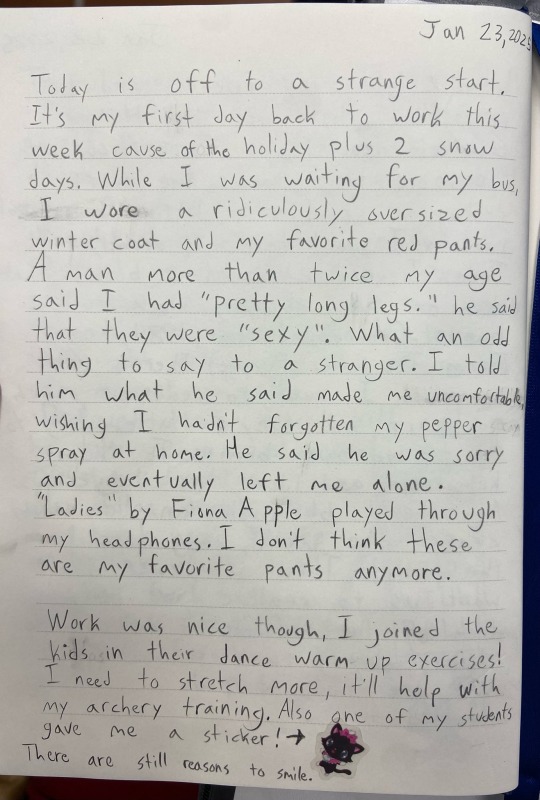 Jan 23, 2025
Today is off to a strange start.
It's my first day back to work this
week cause of the holiday plus 2 snow
days. While I was waiting for my bus,
I wore a ridiculously oversized
winter coat and my favorite red pants.
A man more than twice my age
said I had "pretty long legs." he said
that they were "sexy". What an odd
thing to say to a stranger. I told
him what he said made me uncomfortable,
wishing I hadn't forgotten my pepper
spray at home. He said he was sorry
and eventually left me alone.
"Ladies" by Fiona Apple played through
my headphones. I don't think these
are my favorite pants anymore.
Work was nice though, I joined the
kids in their dance warm up exercises!
I need to stretch more, it'll help with
my archery training. Also one of my students
gave me a sticker! →
There are still reasons to smile.